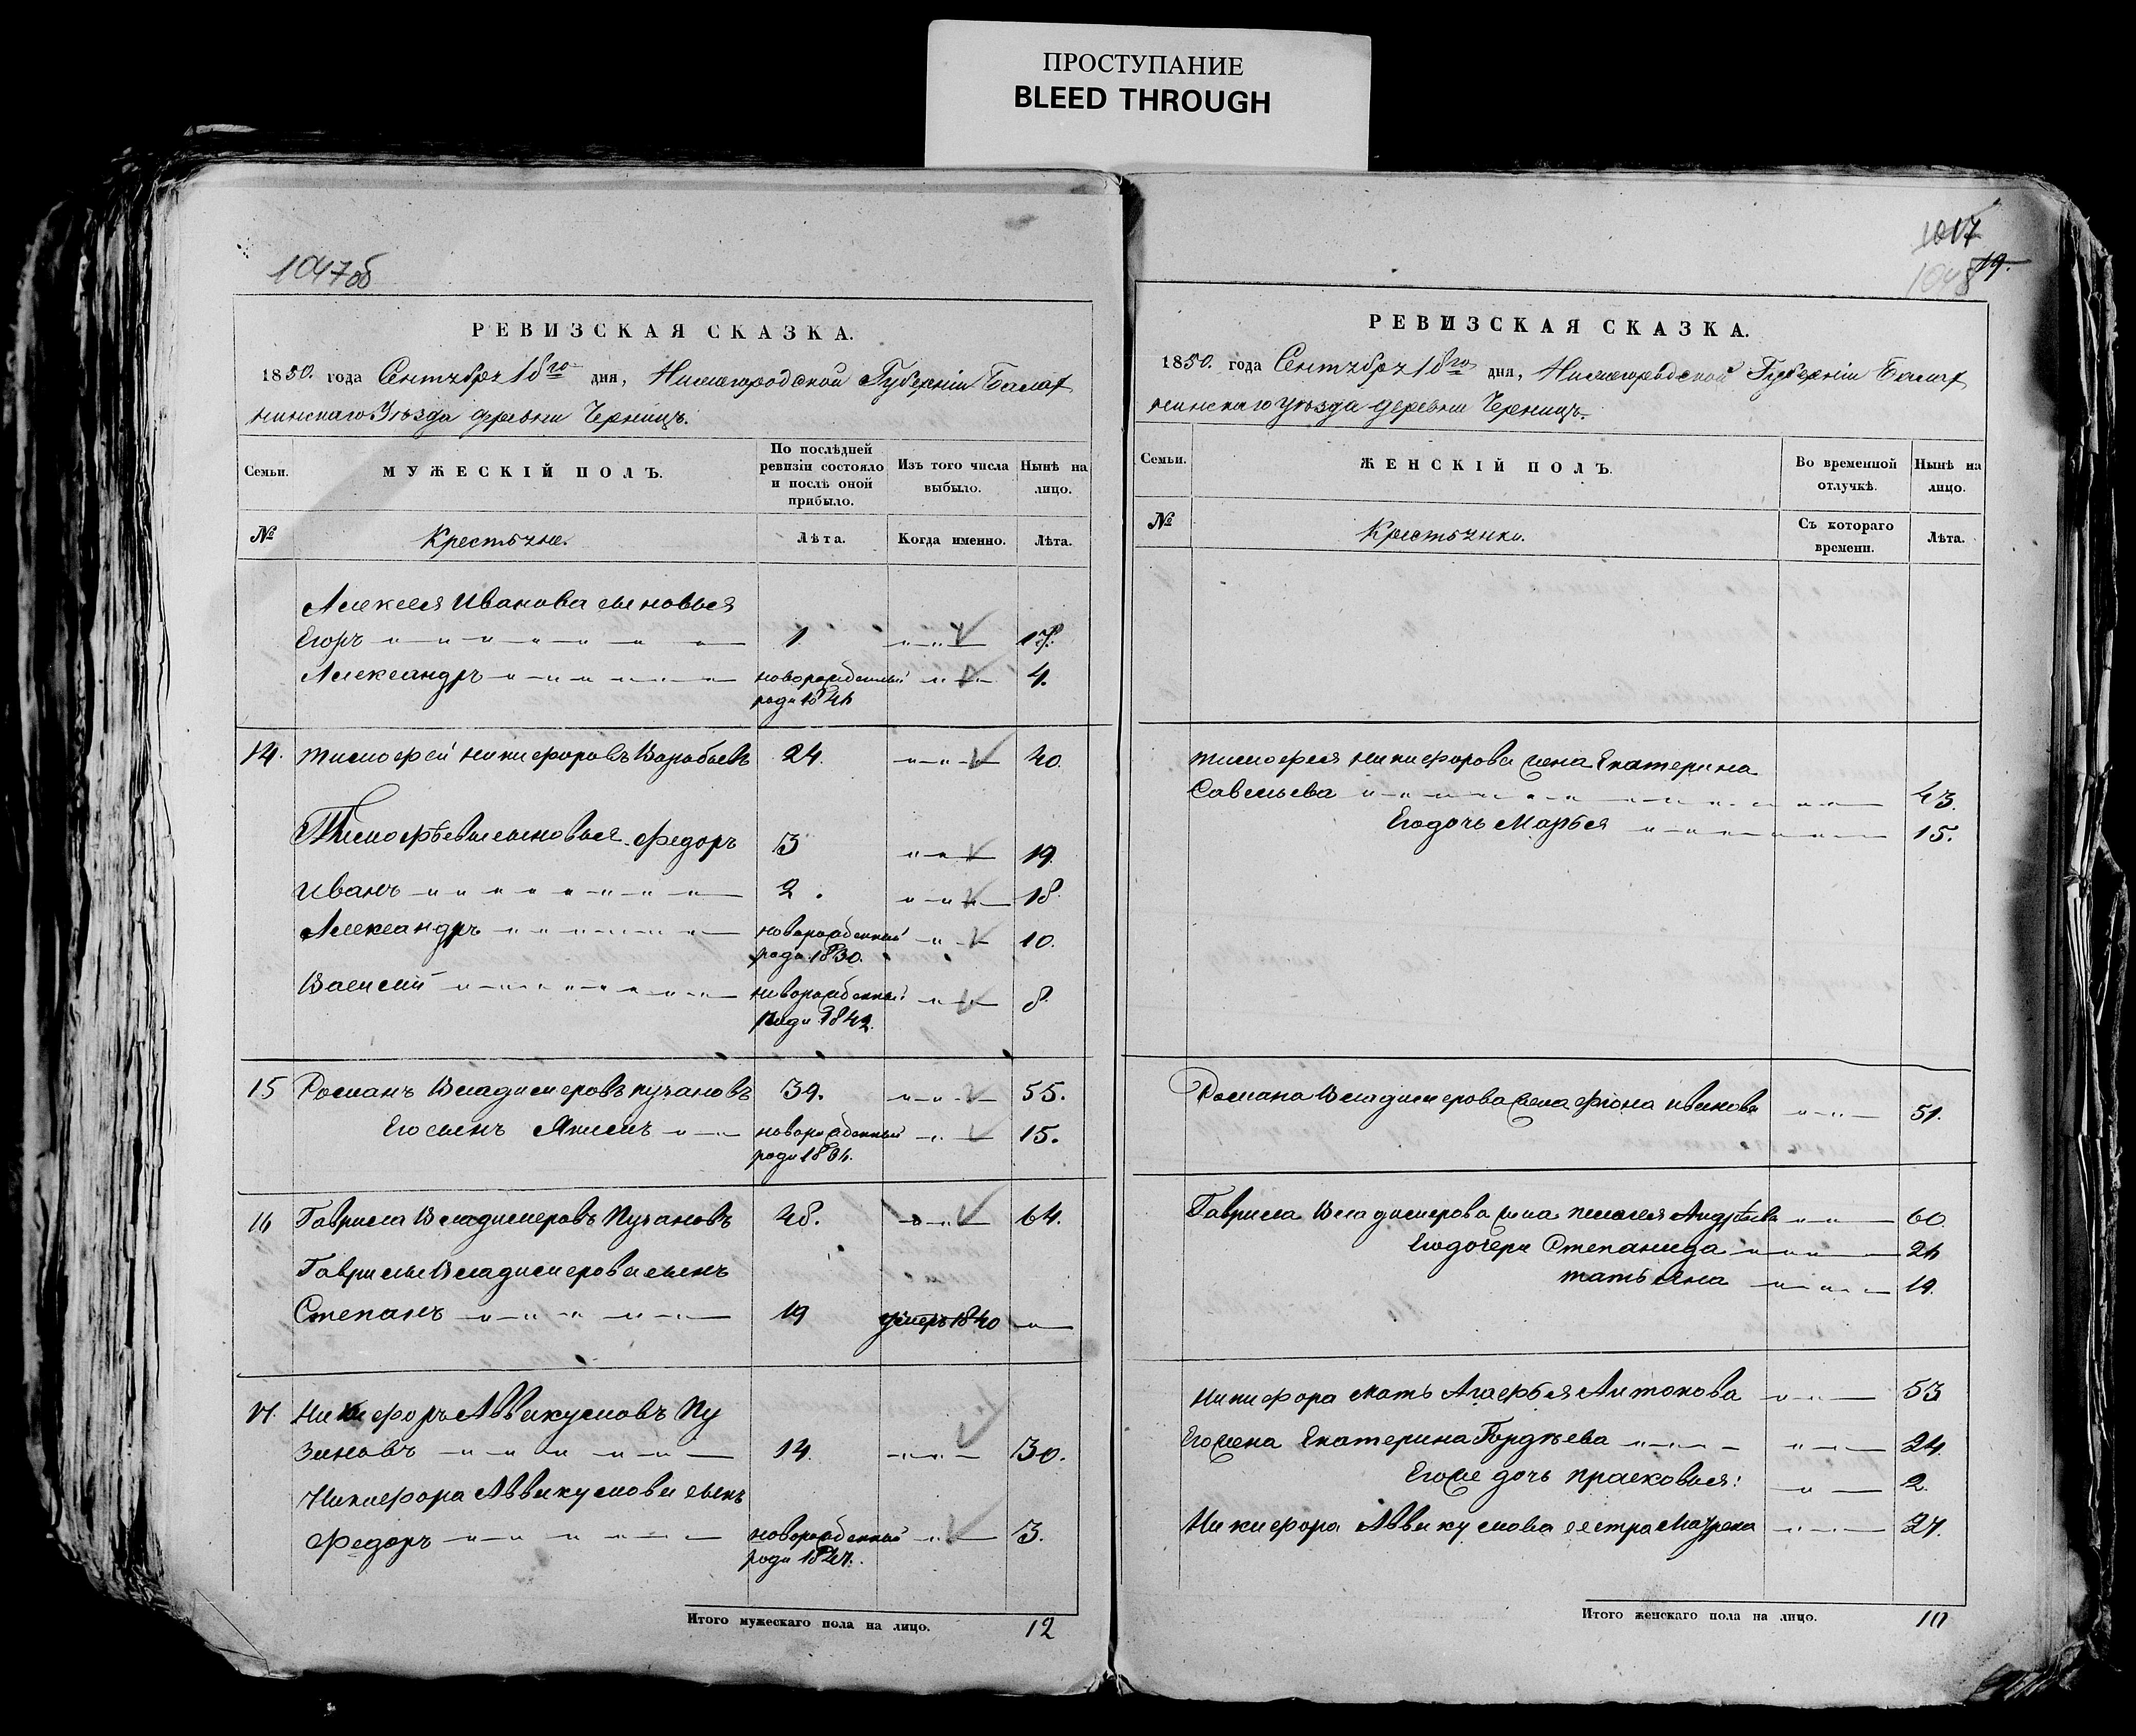 ПРОСТУПАНИЕ
BLEED THROUGH
1047об
РЕВИЗСКАЯ СКАЗКА.
1850. года Сентября 18го дня, Нижегородской Губерніи Балах
нинскаго Уѣзда деревни Черницъ.
Семьи.
МУЖЕСКІЙ ПОЛЪ.
По послѣдней ревизіи состояло и послѣ оной прибыло.
Изъ того числа выбыло.
Нынѣ на лицо.
№
Крестьяне.
Лѣта.
Когда именно.
Лѣта.
Алексея Иванова сыновья
Егоръ 1. 17.
Александръ новорожденный 4.
14. Тимофей Никифоровъ Варабьевъ 24. 40.
Тимофѣевы сыновья Федоръ 3 19.
Иванъ 2. 18.
Александръ новорожденный 10.
Василій новорожденный 8.
роди 1842.
15 Романъ Владимеровъ 39. 55.
Его сынъ новорожденный 15.
16 Гаврила Владимеровъ 48. 64.
Гаврилы Владимерова сынъ
Степанъ 19 умеръ 1840
17. Никифоръ Аввакумовъ Пу
зановъ 14. 30.
Никифора Аввакумова сынъ
Федоръ новорожденный 3.
роди 1847.
Итого мужескаго пола на лицо. 12
1017
19.
1048
РЕВИЗСКАЯ СКАЗКА.
1850. года Сентября 18го дня, Нижегородской Губерніи Балах
нинскаго уѣзда деревни Черницъ.
Семьи.
ЖЕНСКІЙ ПОЛЪ.
Во временной отлучкѣ.
Нынѣ на лицо.
№
Крестьянки.
Съ котораго времени.
Лѣта.
Тимофея Никифорова жена Екатерина
Савельева 43.
Его дочь Марья 15.
Романа Владимерова жена Иванова 51.
Гаврила Владимерова жена Андрѣева 60.
Его дочери Степанида 24
Татьяна 19.
Никифора мать Агафья Антонова 53
Его жена Екатерина Гордѣева 24.
Его же дочь Прасковья: 2.
Никифора Аввакумова сестра Матрена 27.
Итого женскаго пола на лицо. 10